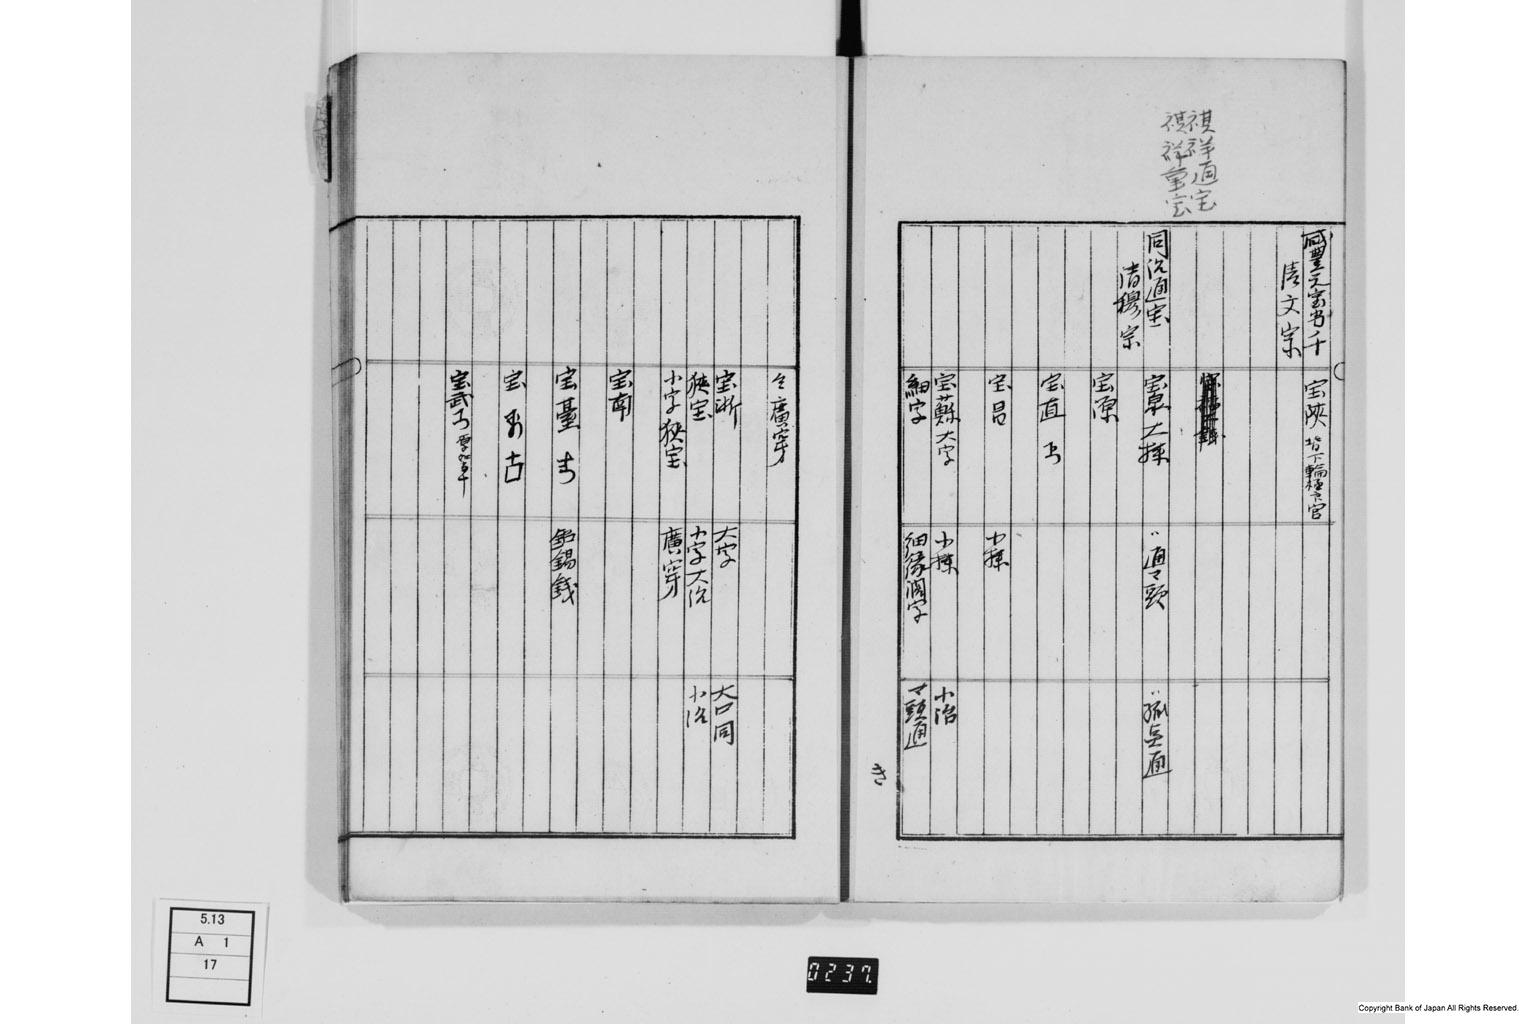 祺祥通宝
祺祥重宝
咸豊元宝当千
清文宗
宝陝 背下輪極印官
同治通宝
清穆宗
宝泉大様
〃通マ頭
〃孤点通
宝源
宝直
宝昌
小様
宝蘇大字
小様
小治
細字
細縁濶字
マ頭通
仝廣穿
宝浙
大字
大口同
狭宝
小字大治
小治
小字狭宝
廣穿
宝南
宝臺
鉛錫銭
宝武
き
5.13
A 1
17
0237.
Copyright Bank of Japan All Rights Reserved.